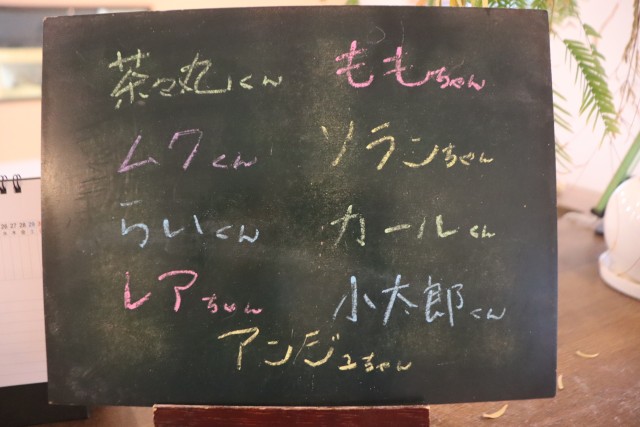 茶々丸くん ももちゃん
ムクくん ソランちゃん
らいくん カールくん
レアちゃん 小太郎くん
アンジュちゃん
26 27 28 29